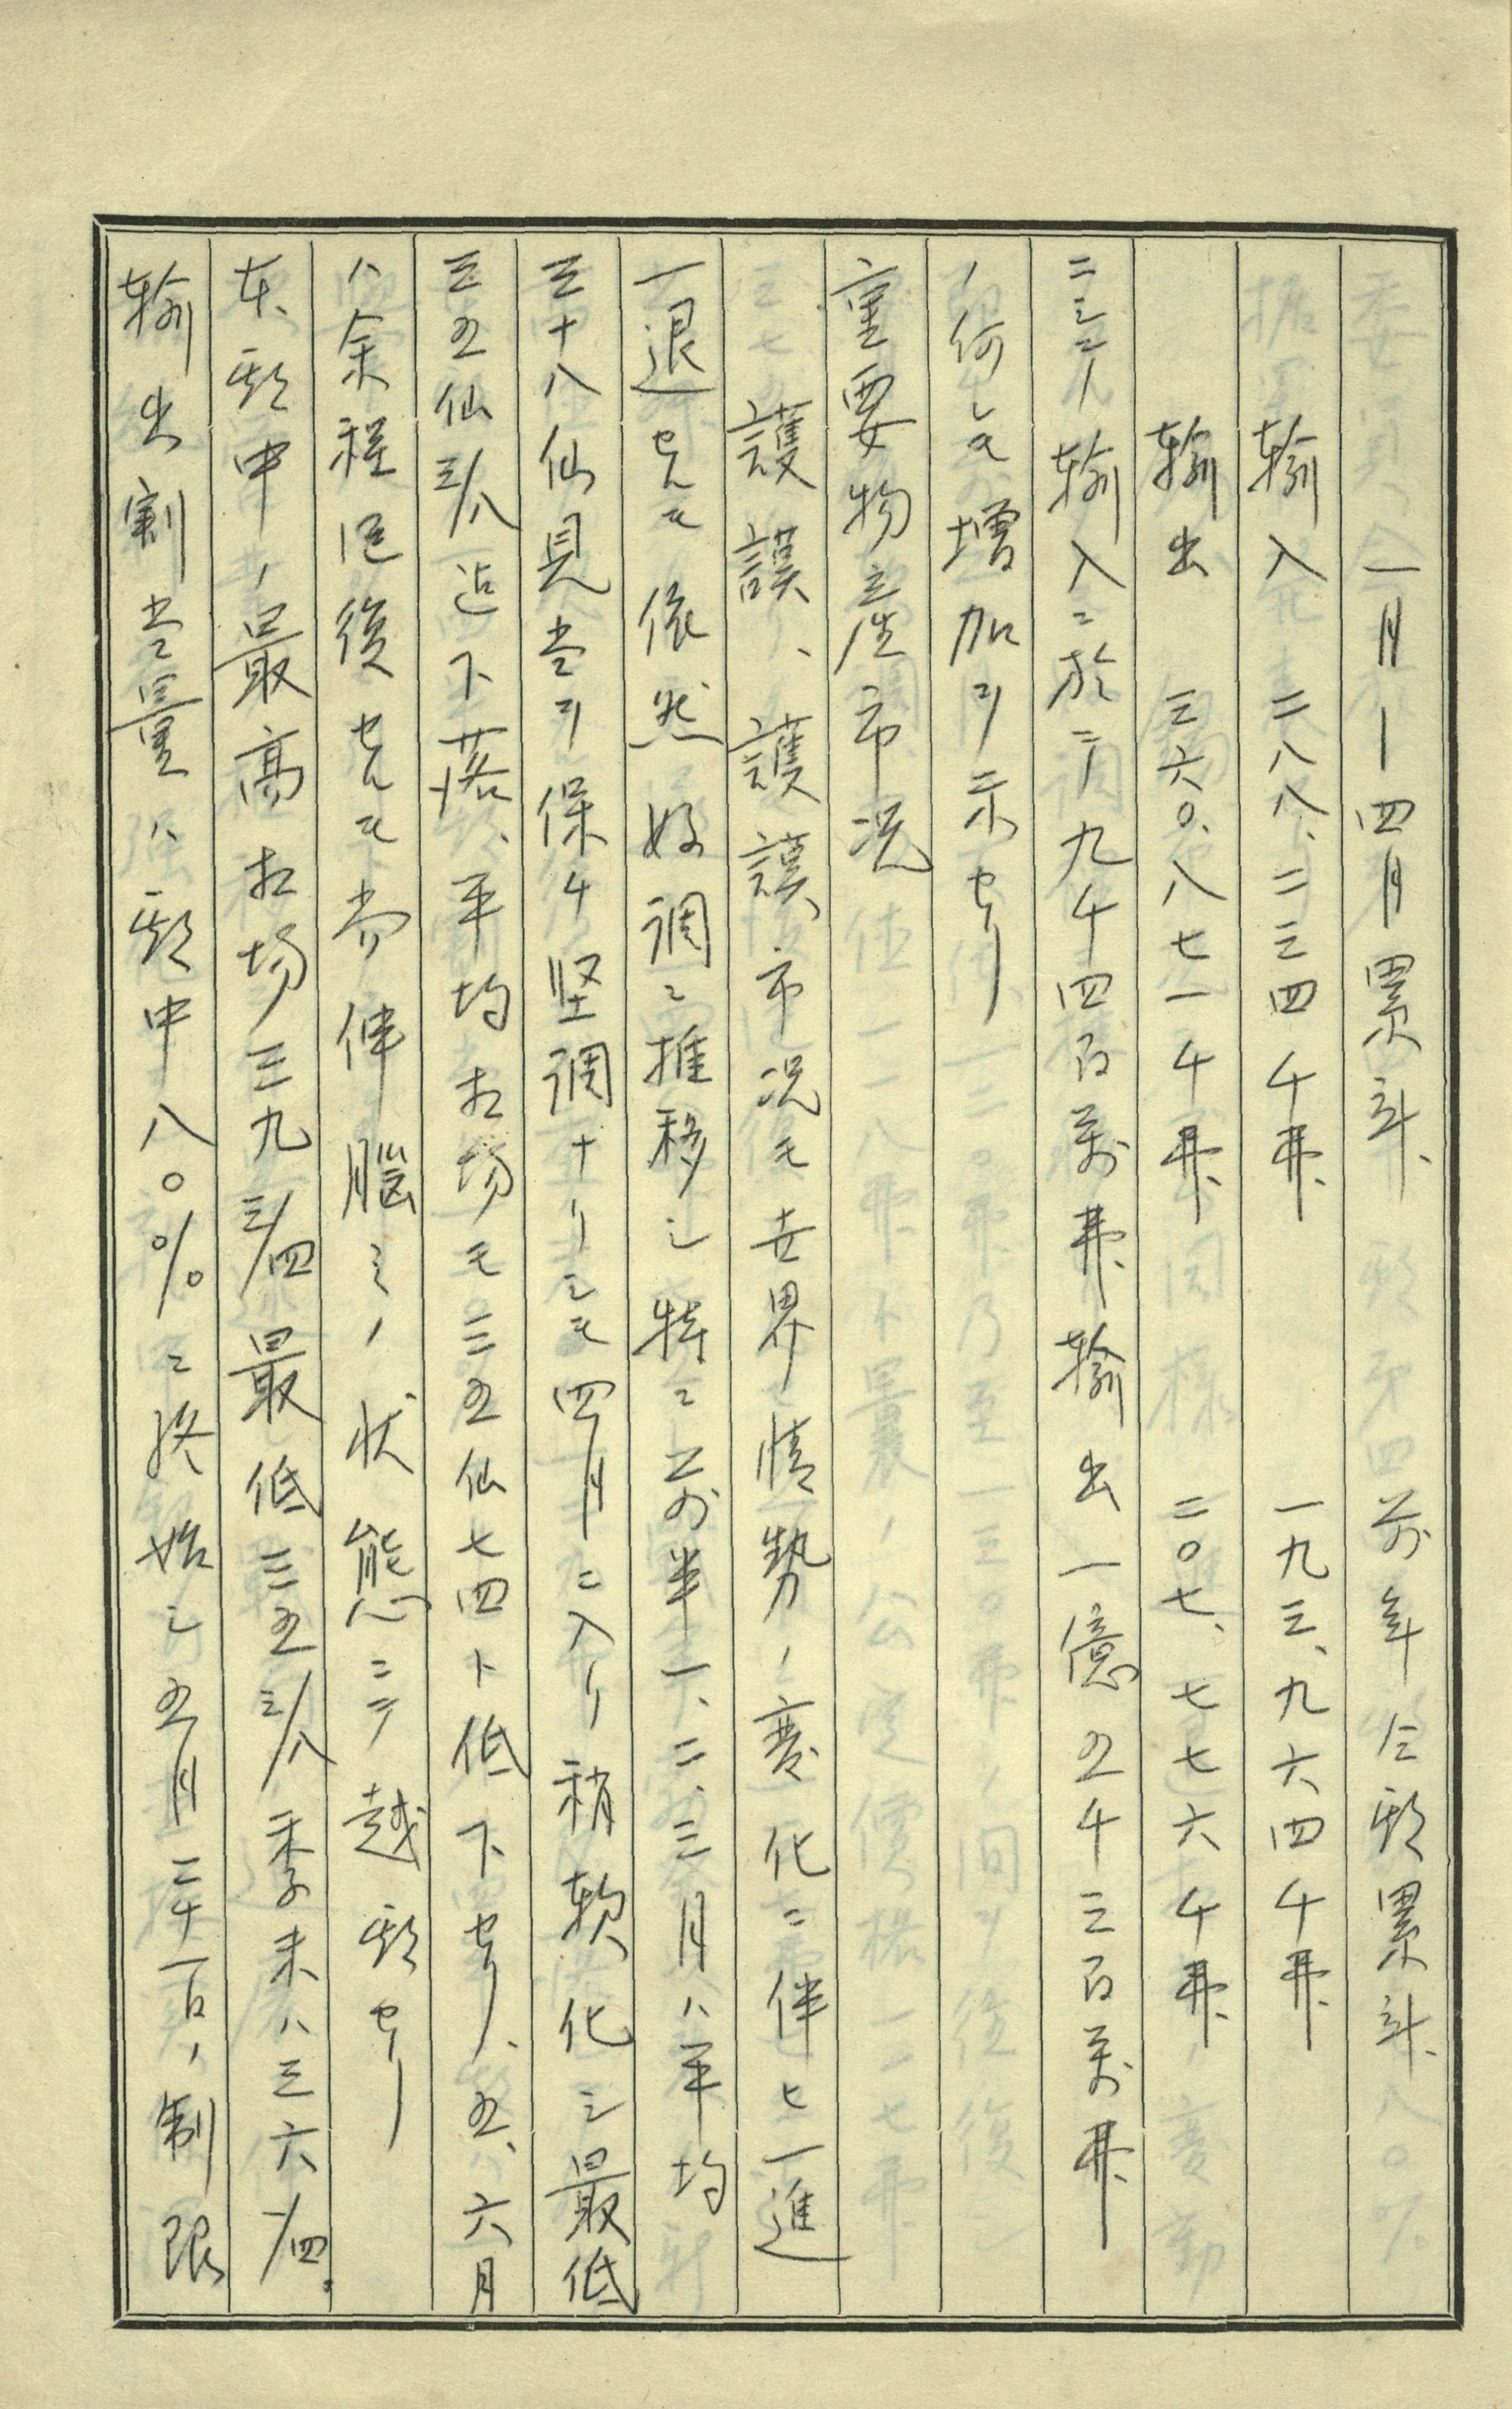 一月—四月累計、前年仝期累計、
輸入 二八八、二三四千弗、 一九三、九六四千弗、
輸出 三六〇、八七一千弗、 二〇七、七七六千弗、
ニシテ、輸入ニ於テ九千四百萬弗、輸出一億五千三百萬弗
ノ何レモ増加ヲ示セリ
重要物産市況
護謨、護謨市況モ世界情勢ノ変化ニ伴ヒ一進
一退セルモ依然好調ニ推移シ特ニ前半一、二、三月ハ平均
三十八仙見当ヲ保チ堅調ナリシモ四月ニ入リ稍軟化シ最低
三五仙三/八迄下落、平均相場モ三五仙七四ト低下セリ、五、六月
ハ余程回復セルモ尚伸悩ミノ状態ニテ越期セリ
本期中ノ最高相場三九三/四最低三五三/八季末ハ三六一/四、
輸出割当量ハ期中八〇%ニ終始シ五月三十一日ノ制限